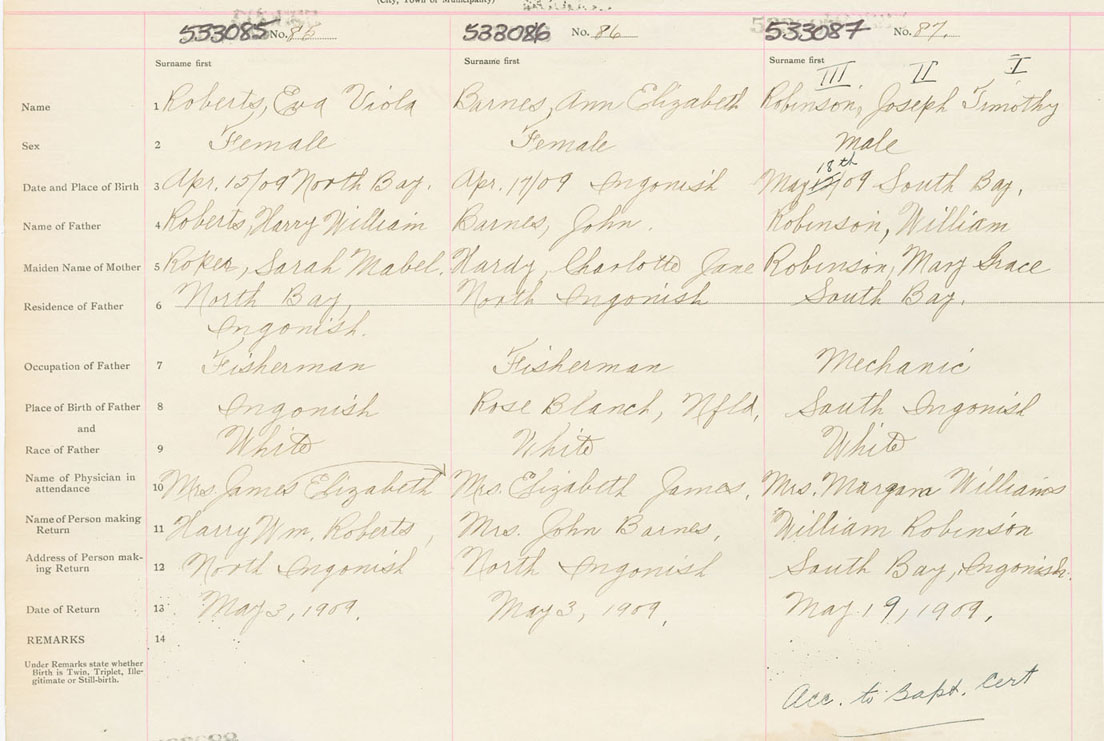 (City, Town or Municipality)
533085 No. 85
533086 No. 86
533087 No. 87.
Surname first Surname first Surname first
III II I
Name 1 Roberts, Eva Viola Barnes, Ann Elizabeth Robinson, Joseph Timothy
Sex 2 Female Female Male
18th
Date and Place of Birth 3 Apr. 15/09 North Bay. Apr. 17/09 Ingonish May /09 South Bay,
Name of Father 4 Roberts, Harry William Barnes, John. Robinson, William
Maiden Name of Mother 5 Roper, Sarah Mabel. Hardy, Charlotte Jane Robinson, Mary Grace
Residence of Father 6 North Bay, North Ingonish South Bay.
Ingonish.
Occupation of Father 7 Fisherman Fisherman Mechanic
Place of Birth of Father 8 Ingonish Rose Blanch, Nfld, South Ingonish
and
Race of Father 9 White White White
Name of Physician in attendance 10 Mrs. James Elizabeth Mrs. Elizabeth James, Mrs. Williams
Name of Person making Return 11 Harry Wm. Roberts, Mrs. John Barnes, William Robinson
Address of Person mak-
ing Return 12 North Ingonish North Ingonish South Bay, Ingonish.
Date of Return 13 May 3, 1909. May 3, 1909. May 19, 1909.
REMARKS 14
Under Remarks state whether
Birth is Twin, Triplet, Ille-
gitimate or Still-birth.
Acc. to Bapt. Cert